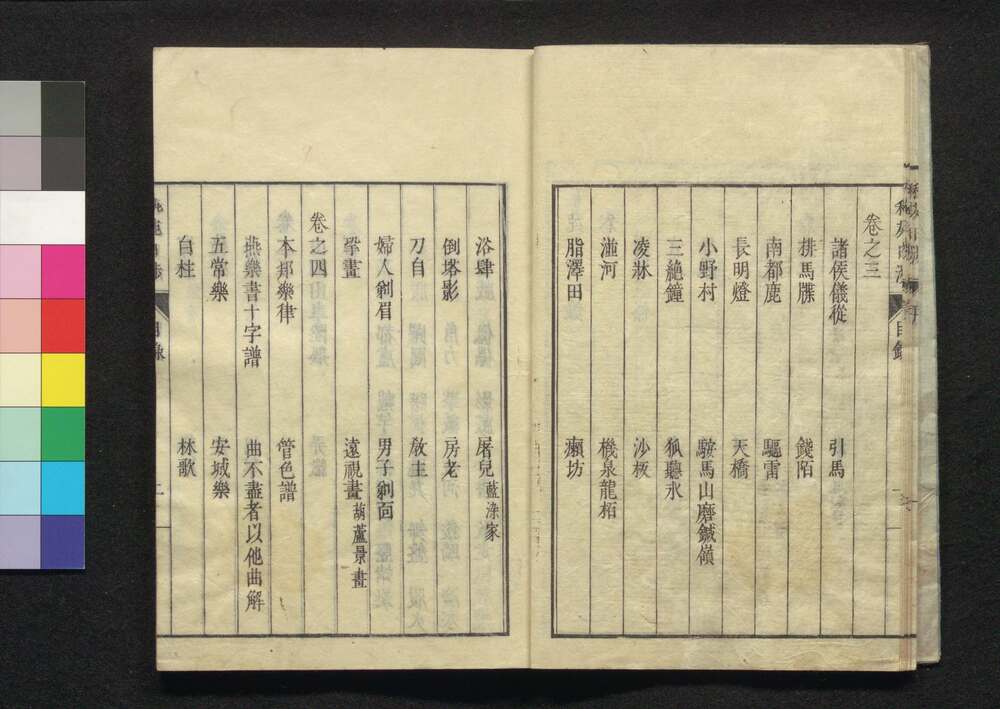 卷之三
諸侯儀從 引馬
排馬牒 錢陌
南都鹿 驅雷
長明燈 天橋
小野村 鞍馬山磨鍼嶺
三絶鐘 狐聽氷
凌牀 沙板
溫河 機泉龍栢
脂澤田 瀬坊
浴肆 屠兒藍染家
倒塔影 房老
刀自 教主
婦人剃眉 男子剃面
擧畫 遠視畫葫蘆景畫
卷之四
本邦樂律 管色譜
燕樂書十字譜 曲不盡者以他曲解
五常樂 安城樂
白柱 林歌
目錄
二